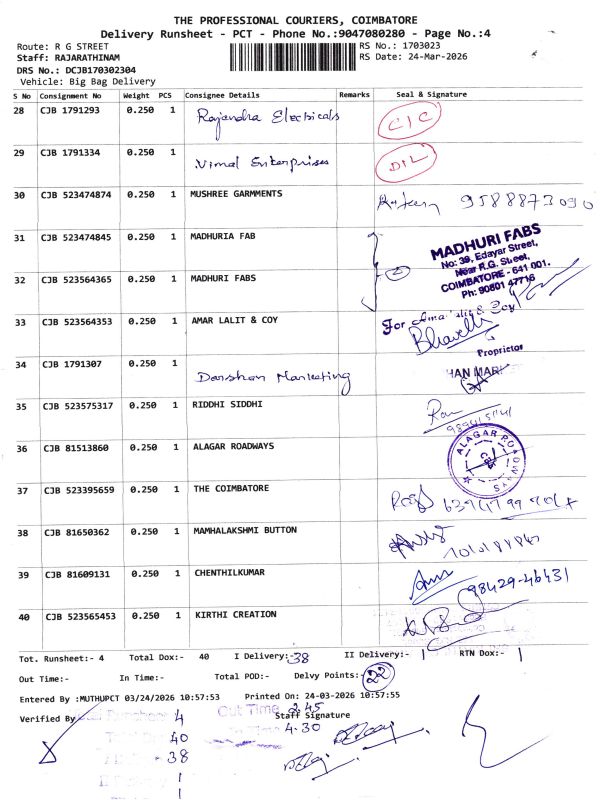 THE PROFESSIONAL COURIERS, COIMBATORE
Delivery Runsheet - PCT - Phone No.:9047080280 - Page No.:4
Route: R G STREET
RS No.: 1703023
Staff: RAJARATHINAM
RS Date: 24-Mar-2026
DRS No.: DCJB170302304
Vehicle: Big Bag Delivery
S No Consignment No Weight PCS Consignee Details Remarks Seal & Signature
28 CJB 1791293 0.250 1 Rajendra Electricals CIC
29 CJB 1791334 0.250 1 Vimal Enterprises DIL
30 CJB 523474874 0.250 1 MUSHREE GARMMENTS 9588873090
31 CJB 523474845 0.250 1 MADHURIA FAB
MADHURI FABS
No: 39, Edayar Street,
Near R.G. Street,
COIMBATORE - 641 001.
Ph: 90801 47716
32 CJB 523564365 0.250 1 MADHURI FABS
33 CJB 523564353 0.250 1 AMAR LALIT & COY
For Amar Lalit & Coy
Proprietor
34 CJB 1791307 0.250 1 Darshan Marketing
35 CJB 523575317 0.250 1 RIDDHI SIDDHI
36 CJB 81513860 0.250 1 ALAGAR ROADWAYS
ALAGAR ROADWAYS
37 CJB 523395659 0.250 1 THE COIMBATORE
38 CJB 81650362 0.250 1 MAMHALAKSHMI BUTTON
39 CJB 81609131 0.250 1 CHENTHILKUMAR 98429-46431
40 CJB 523565453 0.250 1 KIRTHI CREATION
Tot. Runsheet:- 4 Total Dox:- 40 I Delivery:- 38 II Delivery:- 1 RTN Dox:- 1
Out Time:- In Time:- Total POD:- Delvy Points:- 22
Entered By :MUTHUPCT 03/24/2026 10:57:53 Printed On: 24-03-2026 10:57:55
Verified By
Staff Signature
Total Runsheet 4
Out Time 2.45
In Time 4.30
40
38
1
1